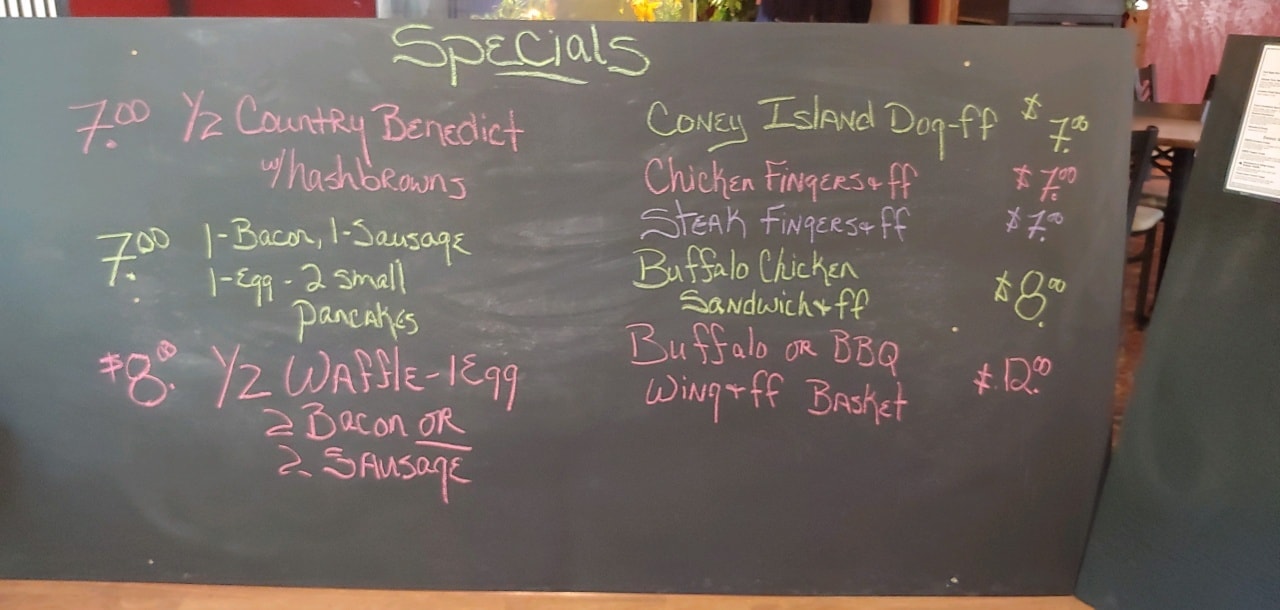 Specials
7.00 1/2 Country Benedict
w/hashbrowns
7.00 1-Bacon, 1-Sausage
1-Egg - 2 small
pancakes
$8.00 1/2 Waffle - 1 Egg
2 Bacon OR
2 Sausage
Coney Island Dog-ff $7.00
Chicken Fingers + ff $7.00
Steak Fingers + ff $7.00
Buffalo Chicken
Sandwich + ff $8.00
Buffalo OR BBQ
Wing + ff Basket $12.00